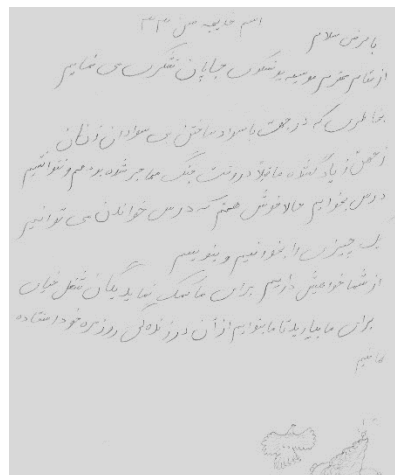 اسم خانیچه سن ۳۳
با عرض سلام
از مقام محترم موسسه یونسکو جاپان تشکری می نمایم
بخاطری که در جهت با سواد ساختن بی سوادان زنان
زحمت زیاد کشیده ما قبلا در وقت جنگ مهاجر شده بودیم و نتوانستیم
درس بخوانیم حالا خوش هستم که درس خواندن می توانیم
یک چیزی را بخوانیم و بنویسم
از شما خواهش داریم برای ما کمک نمایید یگان شغل
برای ما بیارید تا ما بتوانیم از آن در زندگی روزمره خود استفاده
نمائیم